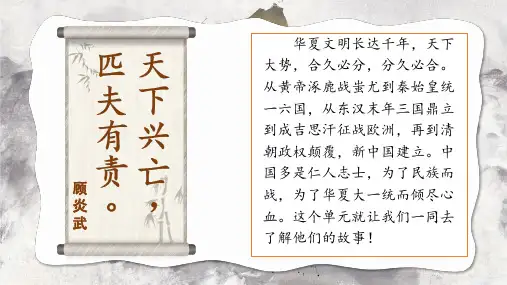 天下兴亡，
匹夫有责。
顾炎武
华夏文明长达千年，天下
大势，合久必分，分久必合。
从黄帝涿鹿战蚩尤到秦始皇统
一六国，从东汉末年三国鼎立
到成吉思汗征战欧洲，再到清
朝政权颠覆，新中国建立。中
国多是仁人志士，为了民族而
战，为了华夏大一统而倾尽心
血。这个单元就让我们一同去
了解他们的故事！